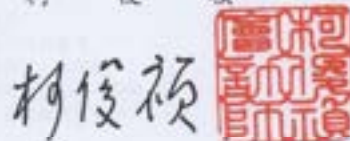 柯俊禎
柯俊禎會計師